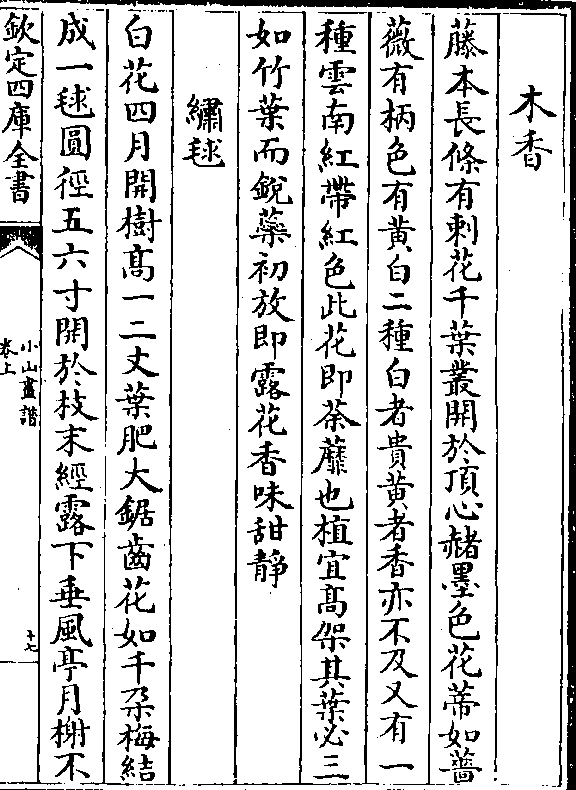 木香
藤本長條有刺花千葉叢開於頂心赭墨色花蒂如薔
薇有柄色有黃白二種白者貴黃者香亦不及又有一
種雲南紅帶紅色此花即荼蘼也植宜髙架其葉必三
如竹葉而銳蘂初放即露花香味甜靜
繡毬
白花四月開樹髙一二丈葉肥大鋸齒花如千朶梅結
成一毬圓徑五六寸開於枝末經露下垂風亭月榭不
欽定四庫全書
小山畫譜
卷上
十七